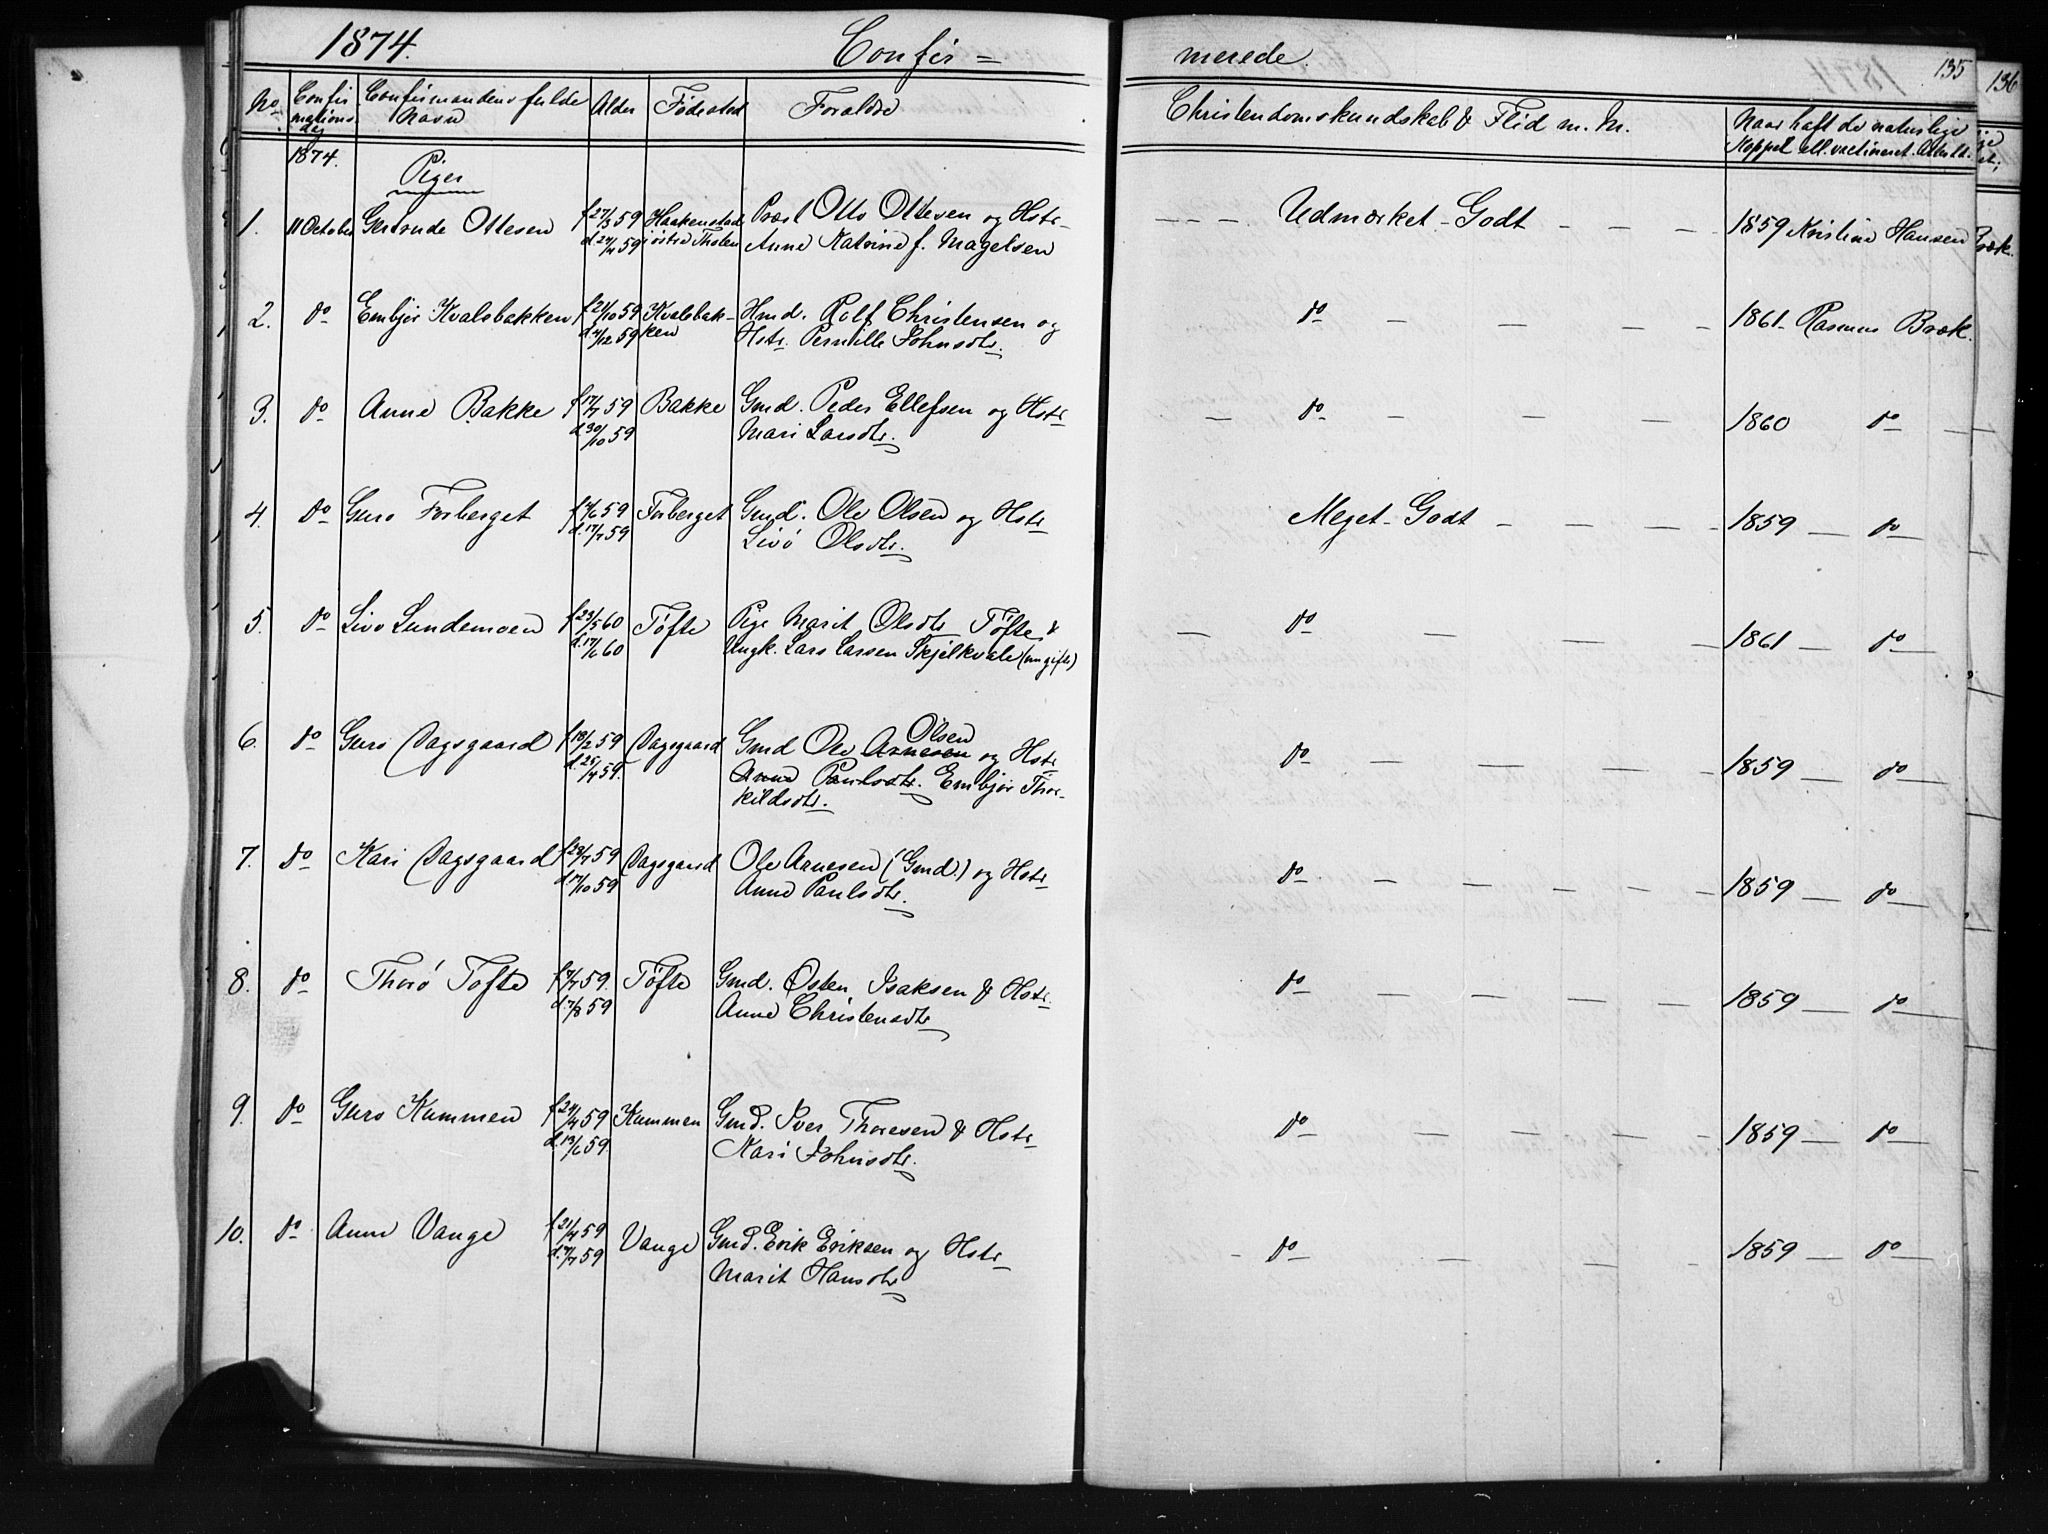 1874. Confir = merede. 135 136
No. Confirmations dag Confirmandens fulde Navn Alder Födested Forældre Christendomskundskab & Flid m. M. Naar haft de naturlige
Kopper ell. vaccineret. Attest.
1874.
Piger
1. 11 October Gertrude Ottesen f 27/3 59 Haakenstad Præst Otto Ottesen og Hstr. — — — Udmærket - Godt — — — 1859 Kristine Hansen Bræk.
d. 24/4 59 i östre Thoten Anne Katrine f. Magelsen
2. do Embjør Kvalsbakken f 21/10 59 Kvalsbak- Hmd. Rolf Christensen og do — — — — 1861 - Rasmus Bræk.
d. 4/12 59 ken Hstr. Pernille Johnsdtr.
3. do Anne Bakke f 17/7 59 Bakke Gmd. Peder Ellefsen og Hstr — do — — — 1860 do —
d. 30/10 59 Mari Larsdtr.
4. do Guro Forberget f 7/6 59 Forberget Gmd. Ole Olsen og Hstr Meget - Godt — — — — 1859 — do —
d. 17/7 59 Livö Olsdtr.
5. do Livo Lundemoen f 23/5 60 Töfte Pige Marit Olsdtr Töfte & — do — — — 1861 — do —
d. 17/6 60 Ungk. Lars Larsen Skjelkvale (um gifte)
Olsen
6. do Guro Dagsgaard f 18/2 59 Dagsgaard Gmd Ole Arnesen og Hstr do — — — — 1859 — do —
d. 25/4 59. Anne Paulsdtr. Embjör Thor-
kildsdtr.
7. do Kari Dagsgaard f 29/7 59 Dagsgaard Ole Arnesen (Gmd.) og Hstr do — — — — 1859 — do —
d. 17/10 59 Anne Paulsdtr.
8. do Thorö Töfte f 7/7 59. Töfte Gmd. Osten Isaksen & Hstr. do — — — — 1859 — do —
d. 7/8 59 Anne Christensdtr
9. do Guro Kummen f 24/4 59 Kummen Gmd. Iver Thoresen & Hstr do — — — — 1859 — do —
d. 13/6 59. Kari Johnsdtr.
10. do Anne Vange f 21/4 59 Vange Gmd. Erik Eriksen og Hstr — do — — — 1859 — do —
d. 7/7 59 Marit Hansdtr